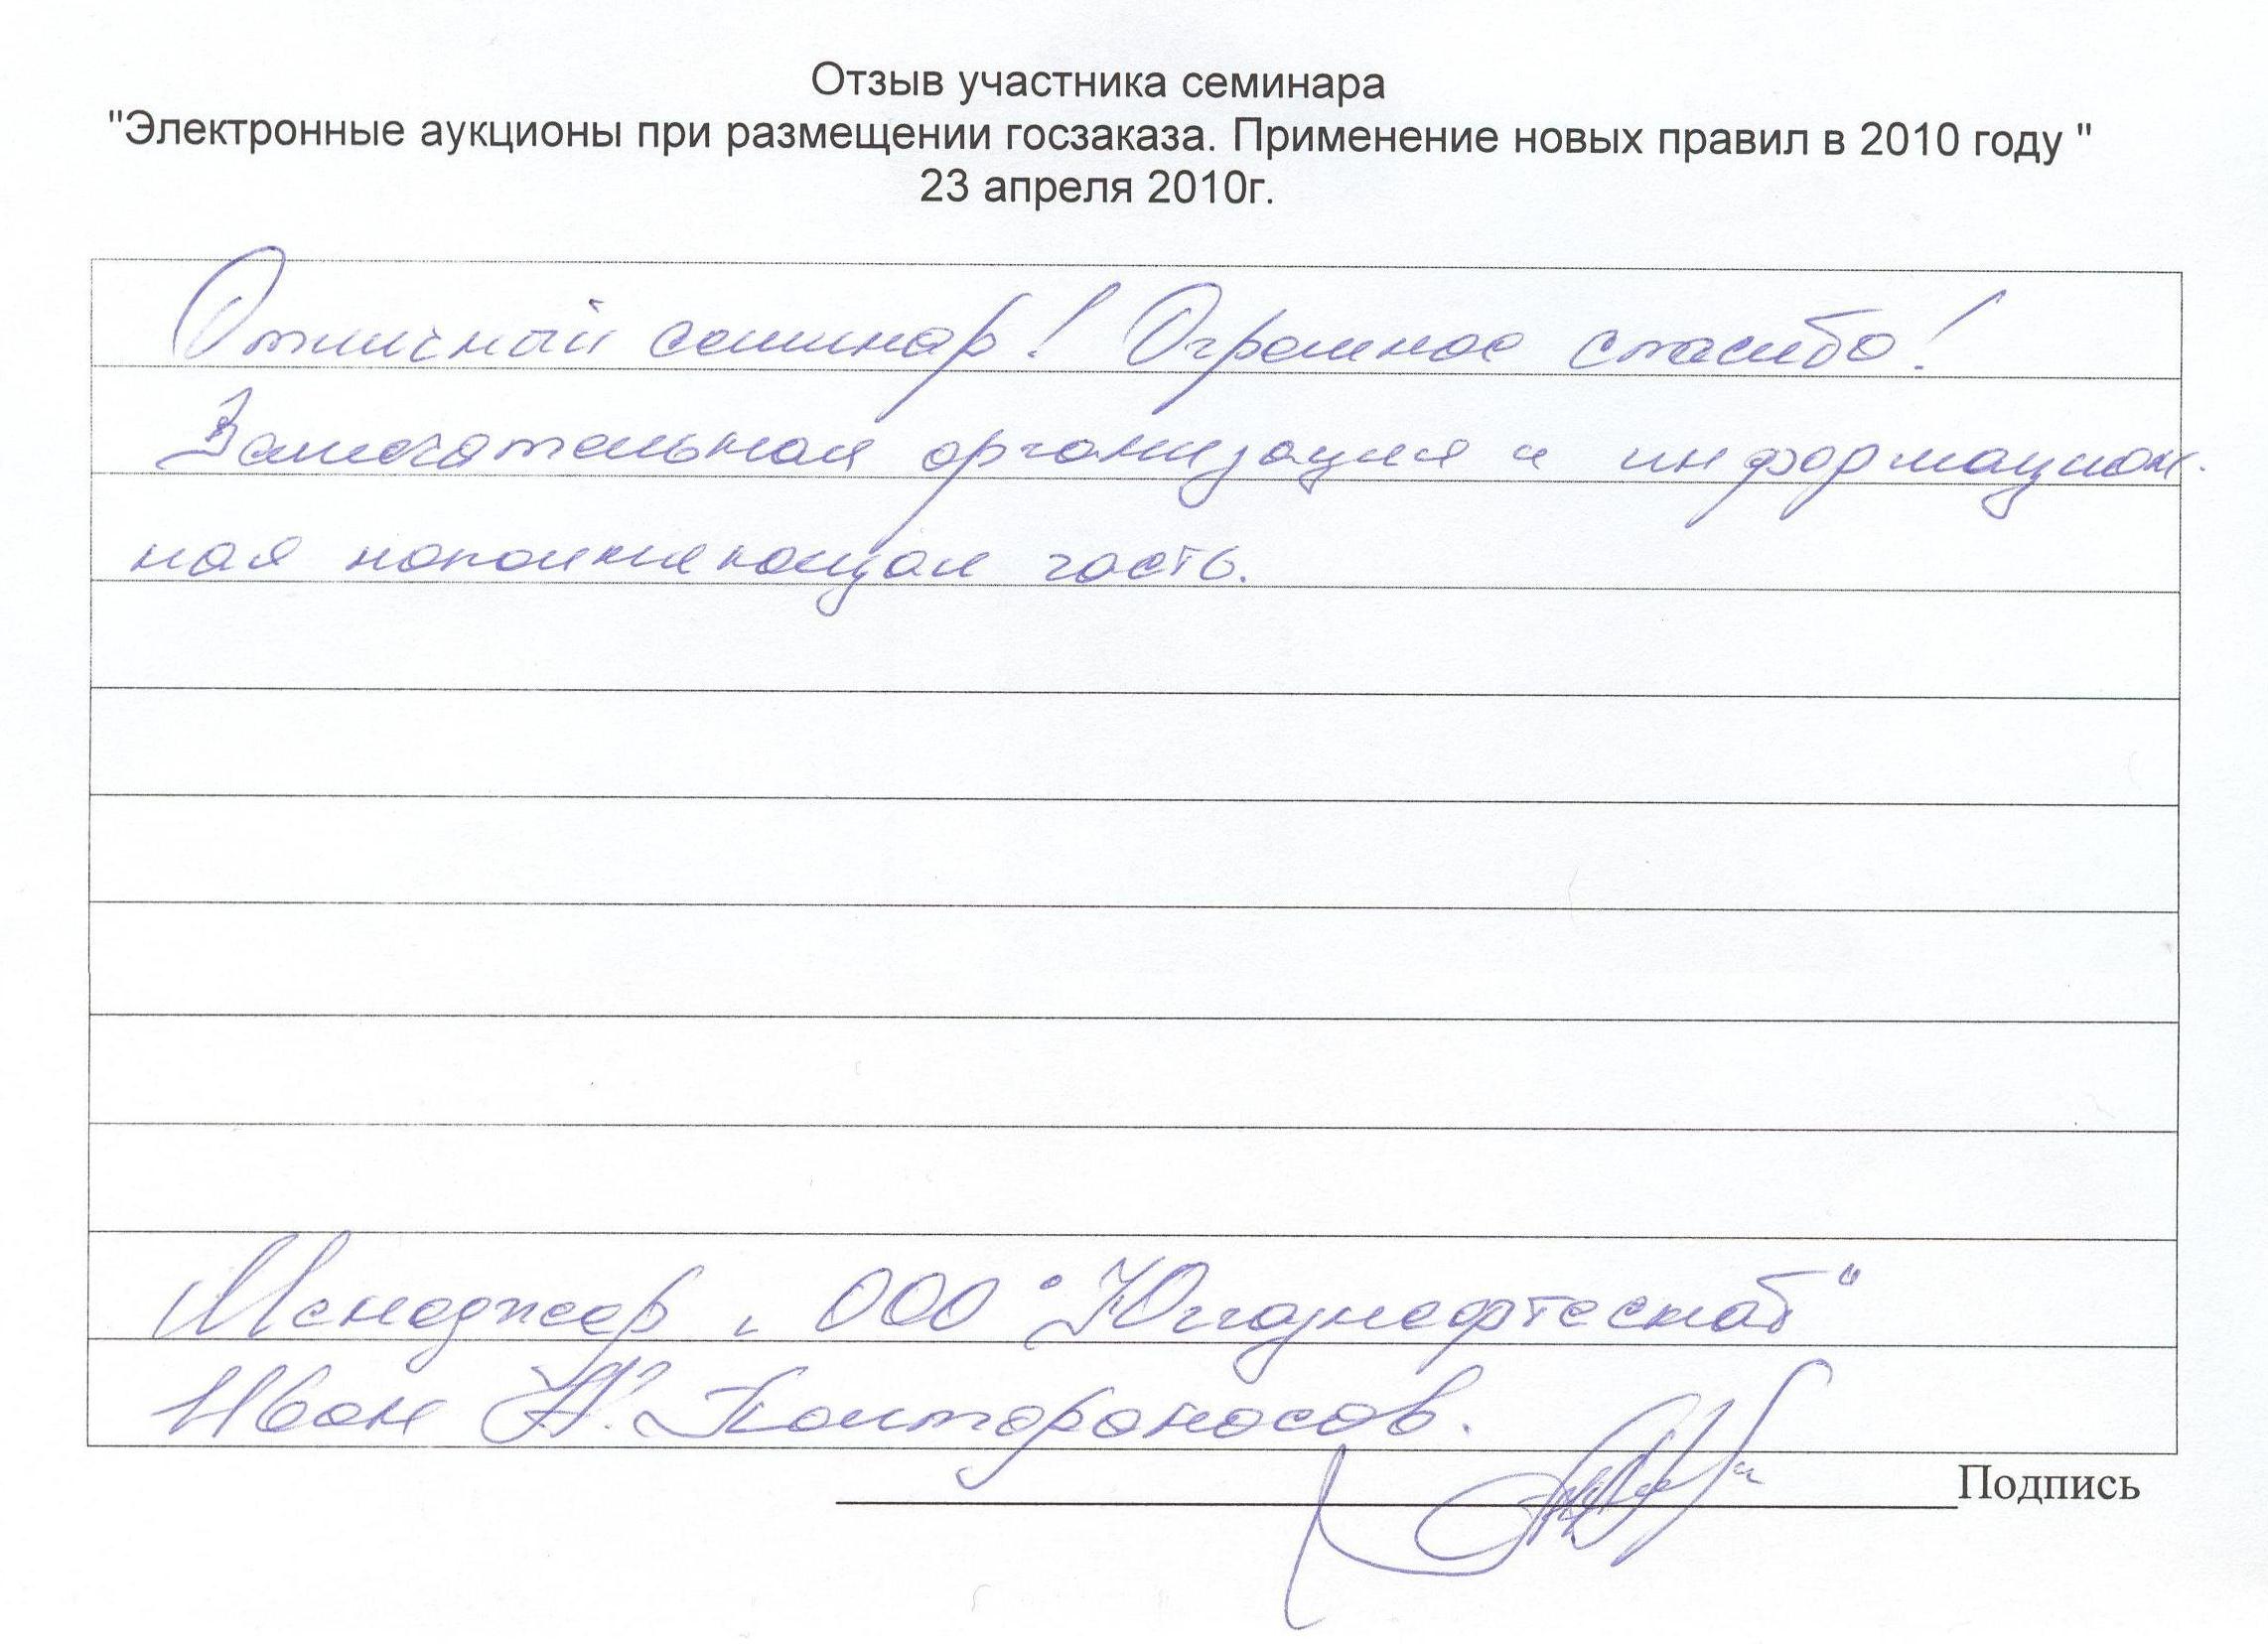 Отзыв участника семинара
"Электронные аукционы при размещении госзаказа. Применение новых правил в 2010 году "
23 апреля 2010г.
Отличный семинар! Огромное спасибо!
Замечательная организация и информацион-
ная наполняющая часть.
Менеджер, ООО "Югразнефтеснаб"
Иван
Подпись